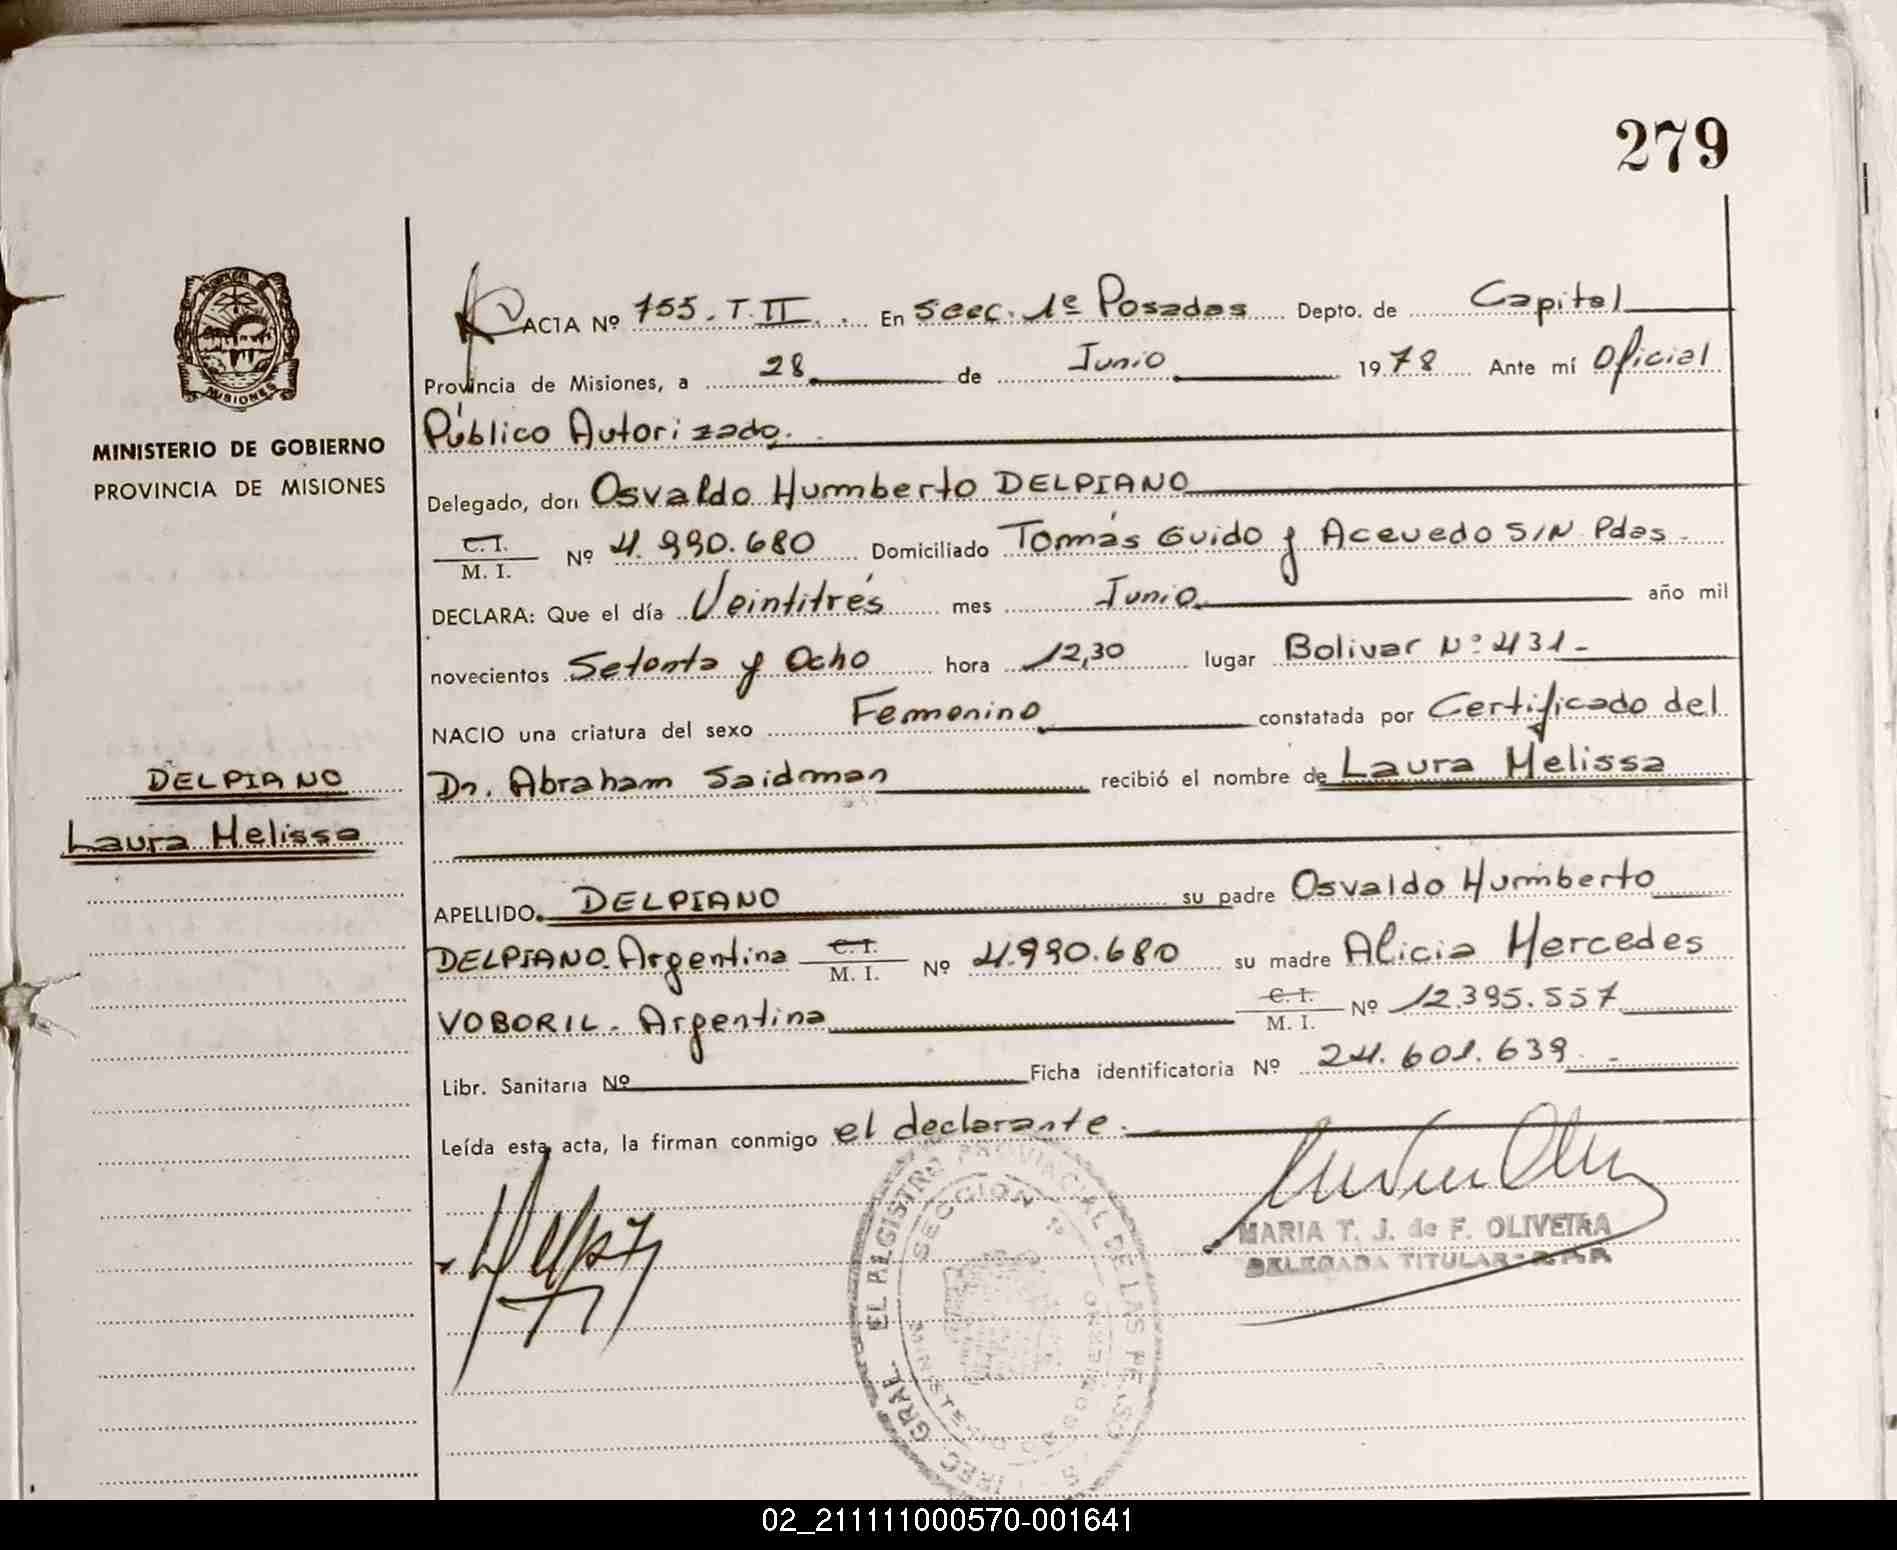 279
MISIONES
MINISTERIO DE GOBIERNO
PROVINCIA DE MISIONES
DELPIANO
Laura Melissa
ACTA Nº 755. T. II. En Secc. 1º Posadas Depto. de Capital
Provincia de Misiones, a 28 de Junio 1978 Ante mí Oficial
Público Autorizado.
Delegado, don Osvaldo Humberto DELPIANO
C. I.
M. I. Nº 4.990.680 Domiciliado Tomás Guido y Acevedo S/N Pdas.
DECLARA: Que el día Veintitrés mes Junio año mil
novecientos Setenta y Ocho hora 12,30 lugar Bolivar Nº 431-
NACIO una criatura del sexo Femenino constatada por Certificado del
Dr. Abraham Saidman recibió el nombre de Laura Melissa
APELLIDO DELPIANO su padre Osvaldo Humberto
DELPIANO. Argentina C. I. M. I. Nº 4.990.680 su madre Alicia Mercedes
VOBORIL. Argentina C. I. M. I. Nº 12.395.557
Libr. Sanitaria Nº Ficha identificatoria Nº 24.601.639.-
Leída esta acta, la firman conmigo el declarante.
GRAL. EL REGISTRO PROVINCIAL DE LAS PERSO
SECCION 1º
MARIA T. J. de F. OLIVEIRA
DELEGADA TITULAR
02_211111000570-001641